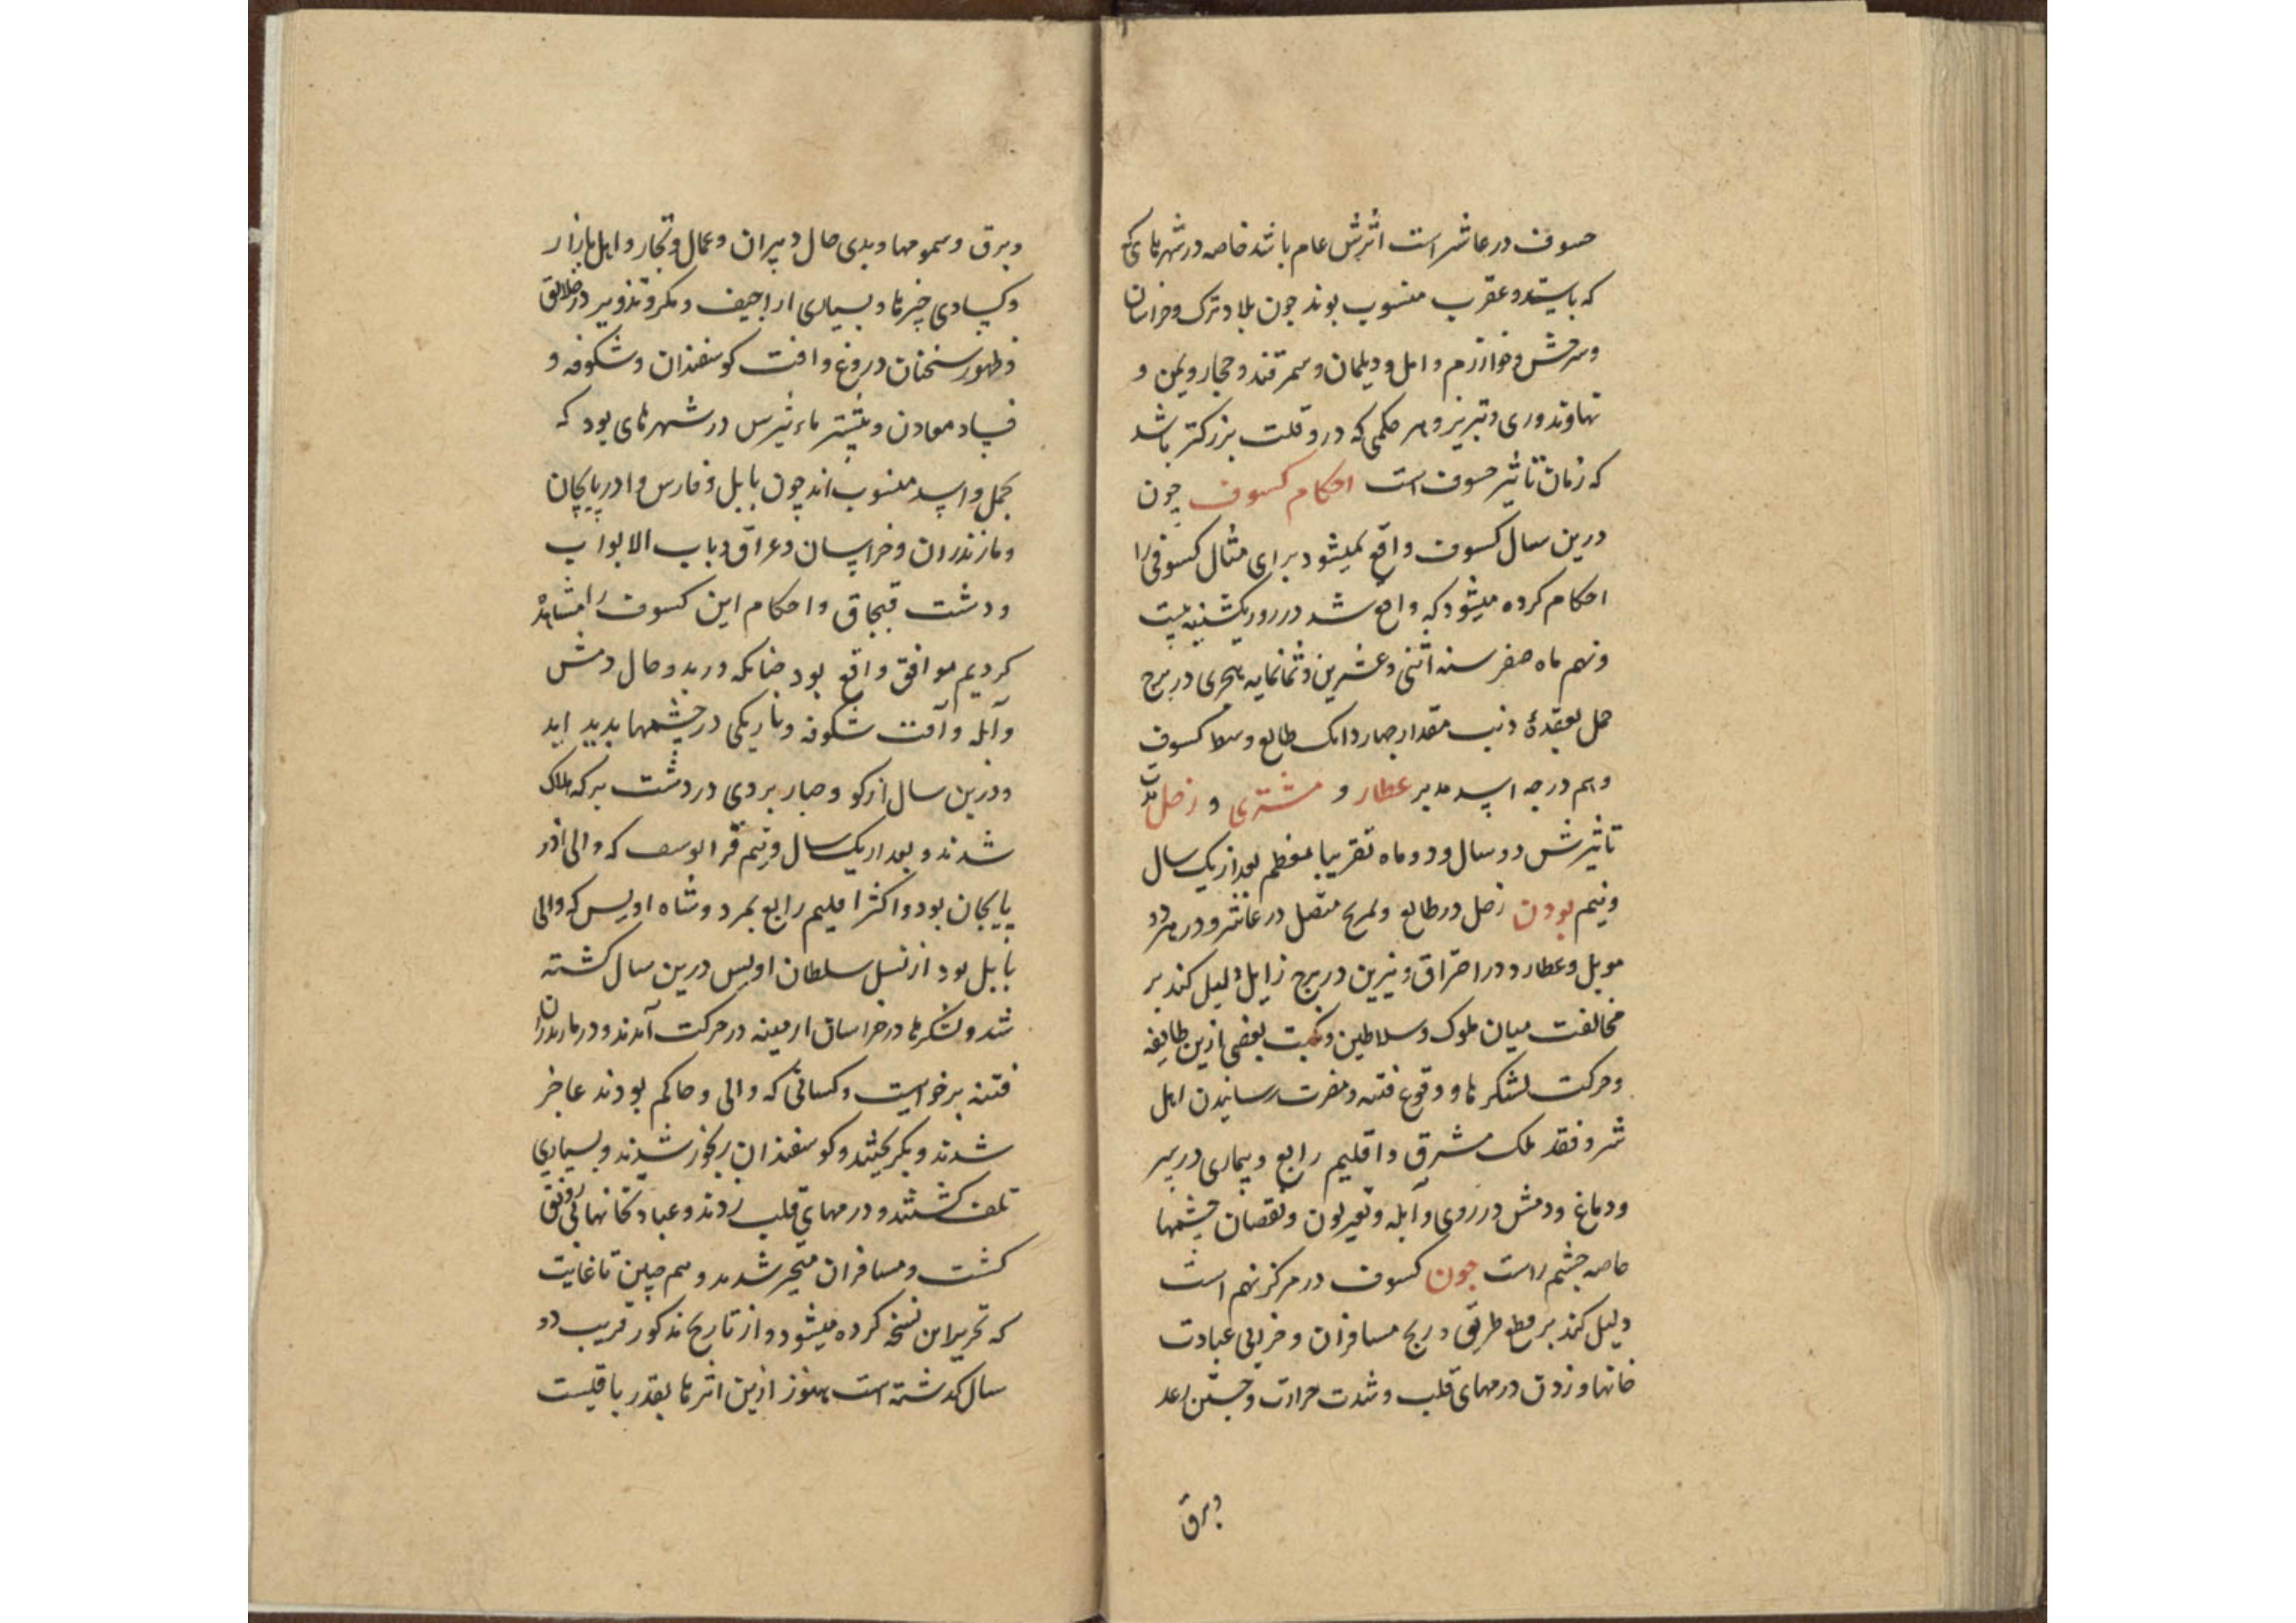 حسوف در عاشر است اثرش عام باشد خاصه در شهرهای
که باسد و عقرب منسوب بوند جون بلاد ترک و خراسان
و خوارزم و امل و دیلمان و سمرقند و حجاز و یمن و
نهاوند و ری و تبریز و هر حکمی که در وقت بزرکتر باشد
که زمان تاثیر حسوف است احکام کسوف چون
درین سال کسوف واقع نمیشود برای مثال کسوفی را
احکام کرده میشود که واقع شد در روز یکشنبه بیست
و نهم ماه صفر سنه اثنی و عشرین و ثمانمایه هجری در برج
حمل بعقدهٔ ذنب مقدار چهار دانک طالع وسط کسوف
درجه اسد مدبر عطارد و مشتری و زحل مدت
تاثیرش دو سال و دو ماه تقریبا معظم بعد از یک سال
و نیم بودن زحل در طالع و مریخ متصل در عاشر و در
و عطارد در احتراق و نیرین در برج زایل دلیل کند بر
مخالفت میان ملوک و سلاطین و نکبت بعضی ازین طایفه
و حرکت لشکرها و وقوع فتنه و مضرت رسانیدن اهل
شر و فقد ملک مشرق و اقلیم رابع و بیماری در سر
و دماغ و دمش در روی و آبله و تغیر لون و نقصان چشمها
خاصه چشم راست جون کسوف در مرکز نهم است
دلیل کند بر قطع طریق و رنج مسافران و خرابی عبادت
خانها و زدن درمهای قلب و شدت حرارت و جستن رعد
و برق
و برق و سمومها و بدی حال دبیران و عمال و تجار و اهل بازار
و کسادی چیزها و بسیاری اراجیف و مکر و تزویر در خلایق
و ظهور سخنان دروغ و افت کوسفندان و شکوفه و
فساد معادن و بیشتر تاثیرش در شهرهای بود که
بحمل و اسد منسوب اند چون بابل و فارس و ادربایجان
و مازندران و خراسان و عراق و باب الابواب
و دشت قبجاق و احکام این کسوف را مشاهده
کردیم موافق واقع بود جنانکه در بدو حال دمش
و آبله و آفت شکوفه و تاریکی در چشمها بدید اید
و درین سال در دشت برکه هلاک
شدند و بعد از یک سال و نیم قرا یوسف که والی اذر
بایجان بود و اکثر اقلیم رابع بمرد و شاه اویس که والی
بابل بود از نسل سلطان اویس درین سال کشته
شد و لشکرها در خراسان ارمینه در حرکت آمدند و در مازندران
فتنه برخواست و کسانی که والی و حاکم بودند عاجز
شدند و بکریختند و کوسفندان رنجور شدند و بسیاری
تلف کشتند و درمهای قلب زدند و عبادتخانها بی رونق
کشت و مسافران متحیر شدند و هم چنین تا غایت
که تحریر این نسخه کرده میشود و از تاریخ مذکور قریب دو
سال کدشته است هنوز ازین اثرها بقدر باقیست